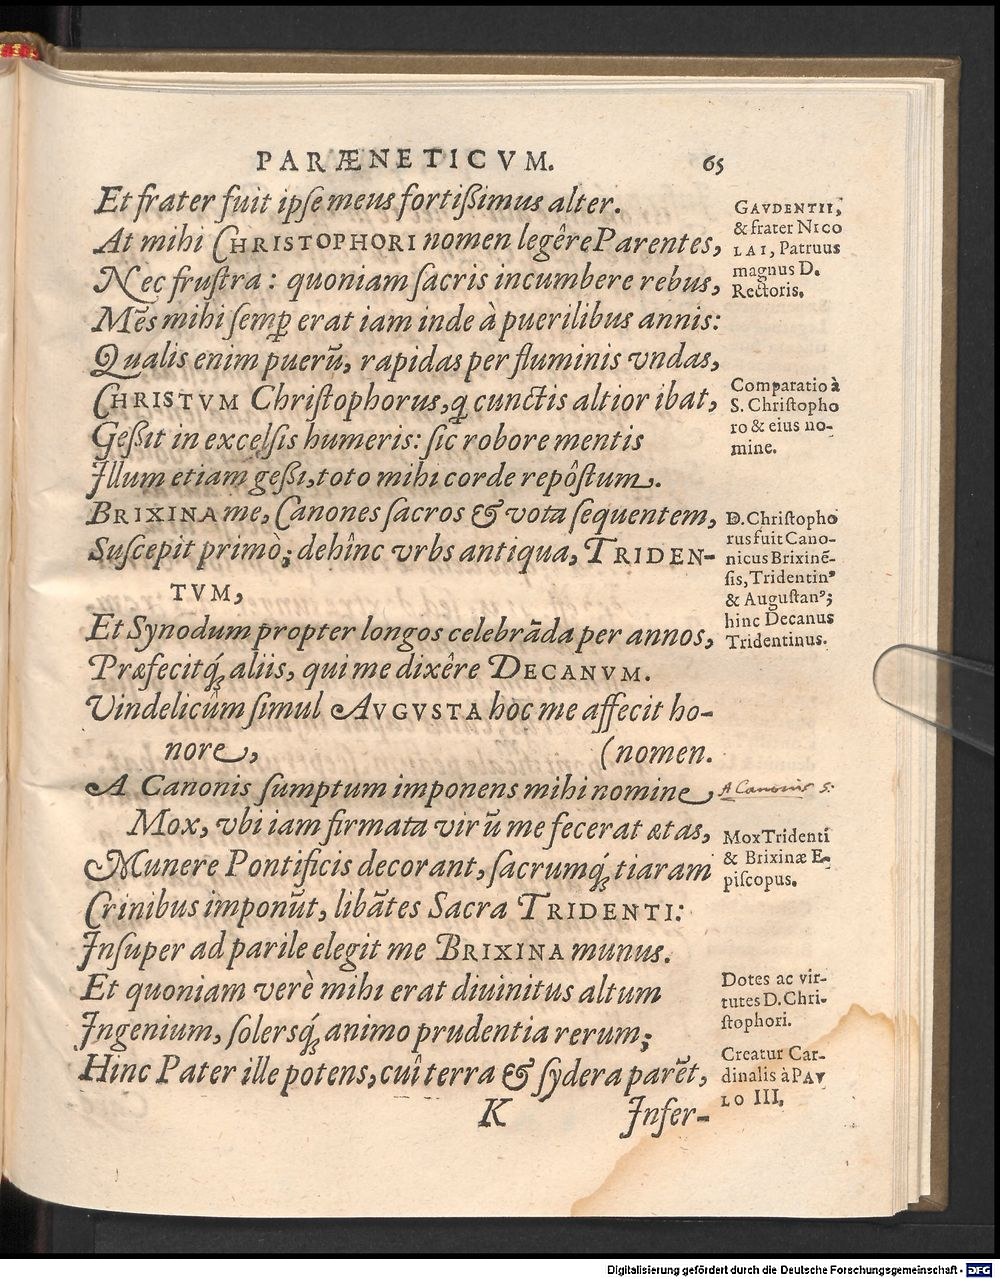 PARÆNETICVM. 65
Et frater fuit ipse meus fortißimus alter.
At mihi CHRISTOPHORI nomen legêre Parentes,
Nec frustra: quoniam sacris incumbere rebus,
Mẽs mihi semꝑ erat iam inde à puerilibus annis:
Qualis enim puerũ, rapidas per fluminis vndas,
CHRISTVM Christophorus, q̃ cunctis altior ibat,
Geßit in excelsis humeris: sic robore mentis
Illum etiam geßi, toto mihi corde repôstum.
BRIXINA me, Canones sacros & vota sequentem,
Suscepit primò; dehînc vrbs antiqua, TRIDEN-
TVM,
Et Synodum propter longos celebrãda per annos,
Præfecitq́; aliis, qui me dixêre DECANVM.
Vindelicûm simul AVGVSTA hoc me affecit ho-
nore, (nomen.
A Canonis sumptum imponens mihi nomine,
Mox, vbi iam firmata virũ me fecerat ætas,
Munere Pontificis decorant, sacrumq́; tiaram
Crinibus imponũt, libãtes Sacra TRIDENTI:
Insuper ad parile elegit me BRIXINA munus.
Et quoniam verè mihi erat diuinitus altum
Ingenium, solersq́; animo prudentia rerum;
Hinc Pater ille potens, cuî terra & sydera parẽt,
K Infer-
GAVDENTII,
& frater NICO
LAI, Patruus
magnus D.
Rectoris.
Comparatio à
S. Christopho
ro & eius no-
mine.
D. Christopho
rus fuit Cano-
nicus Brixinẽ-
sis, Tridentinꝰ
& Augustanꝰ;
hinc Decanus
Tridentinus.
A Canonis s:
Mox Tridenti
& Brixinæ E-
piscopus.
Dotes ac vir-
tutes D. Chri-
stophori.
Creatur Car-
dinalis à PAV
LO III.
Digitalisierung gefördert durch die Deutsche Forschungsgemeinschaft - DFG